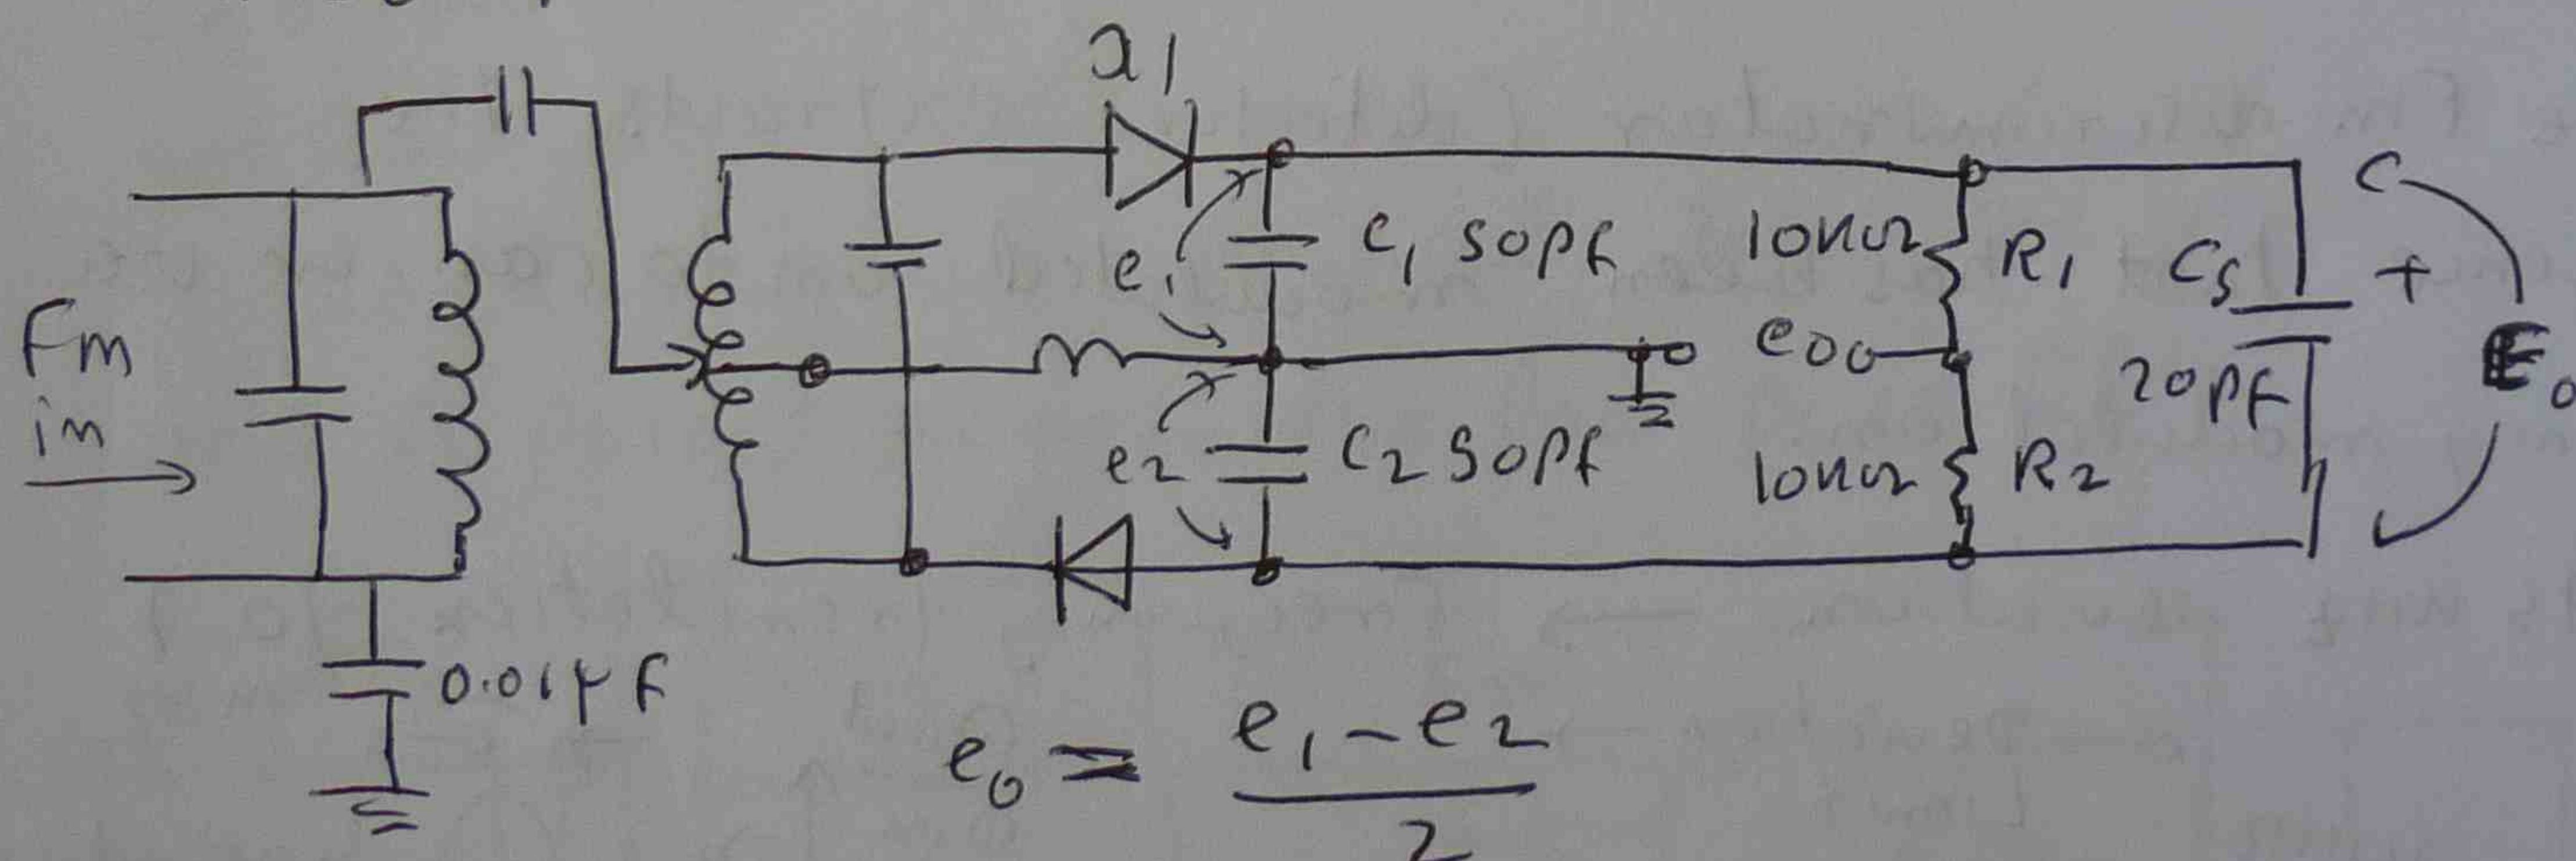 D1
e1
C1 50pf
10KΩ
R1
C5
+
C
Fm
in
e0
20pf
E0
e2
C2 50pf
10KΩ
R2
0.01μF
e0 = e1 - e2
2